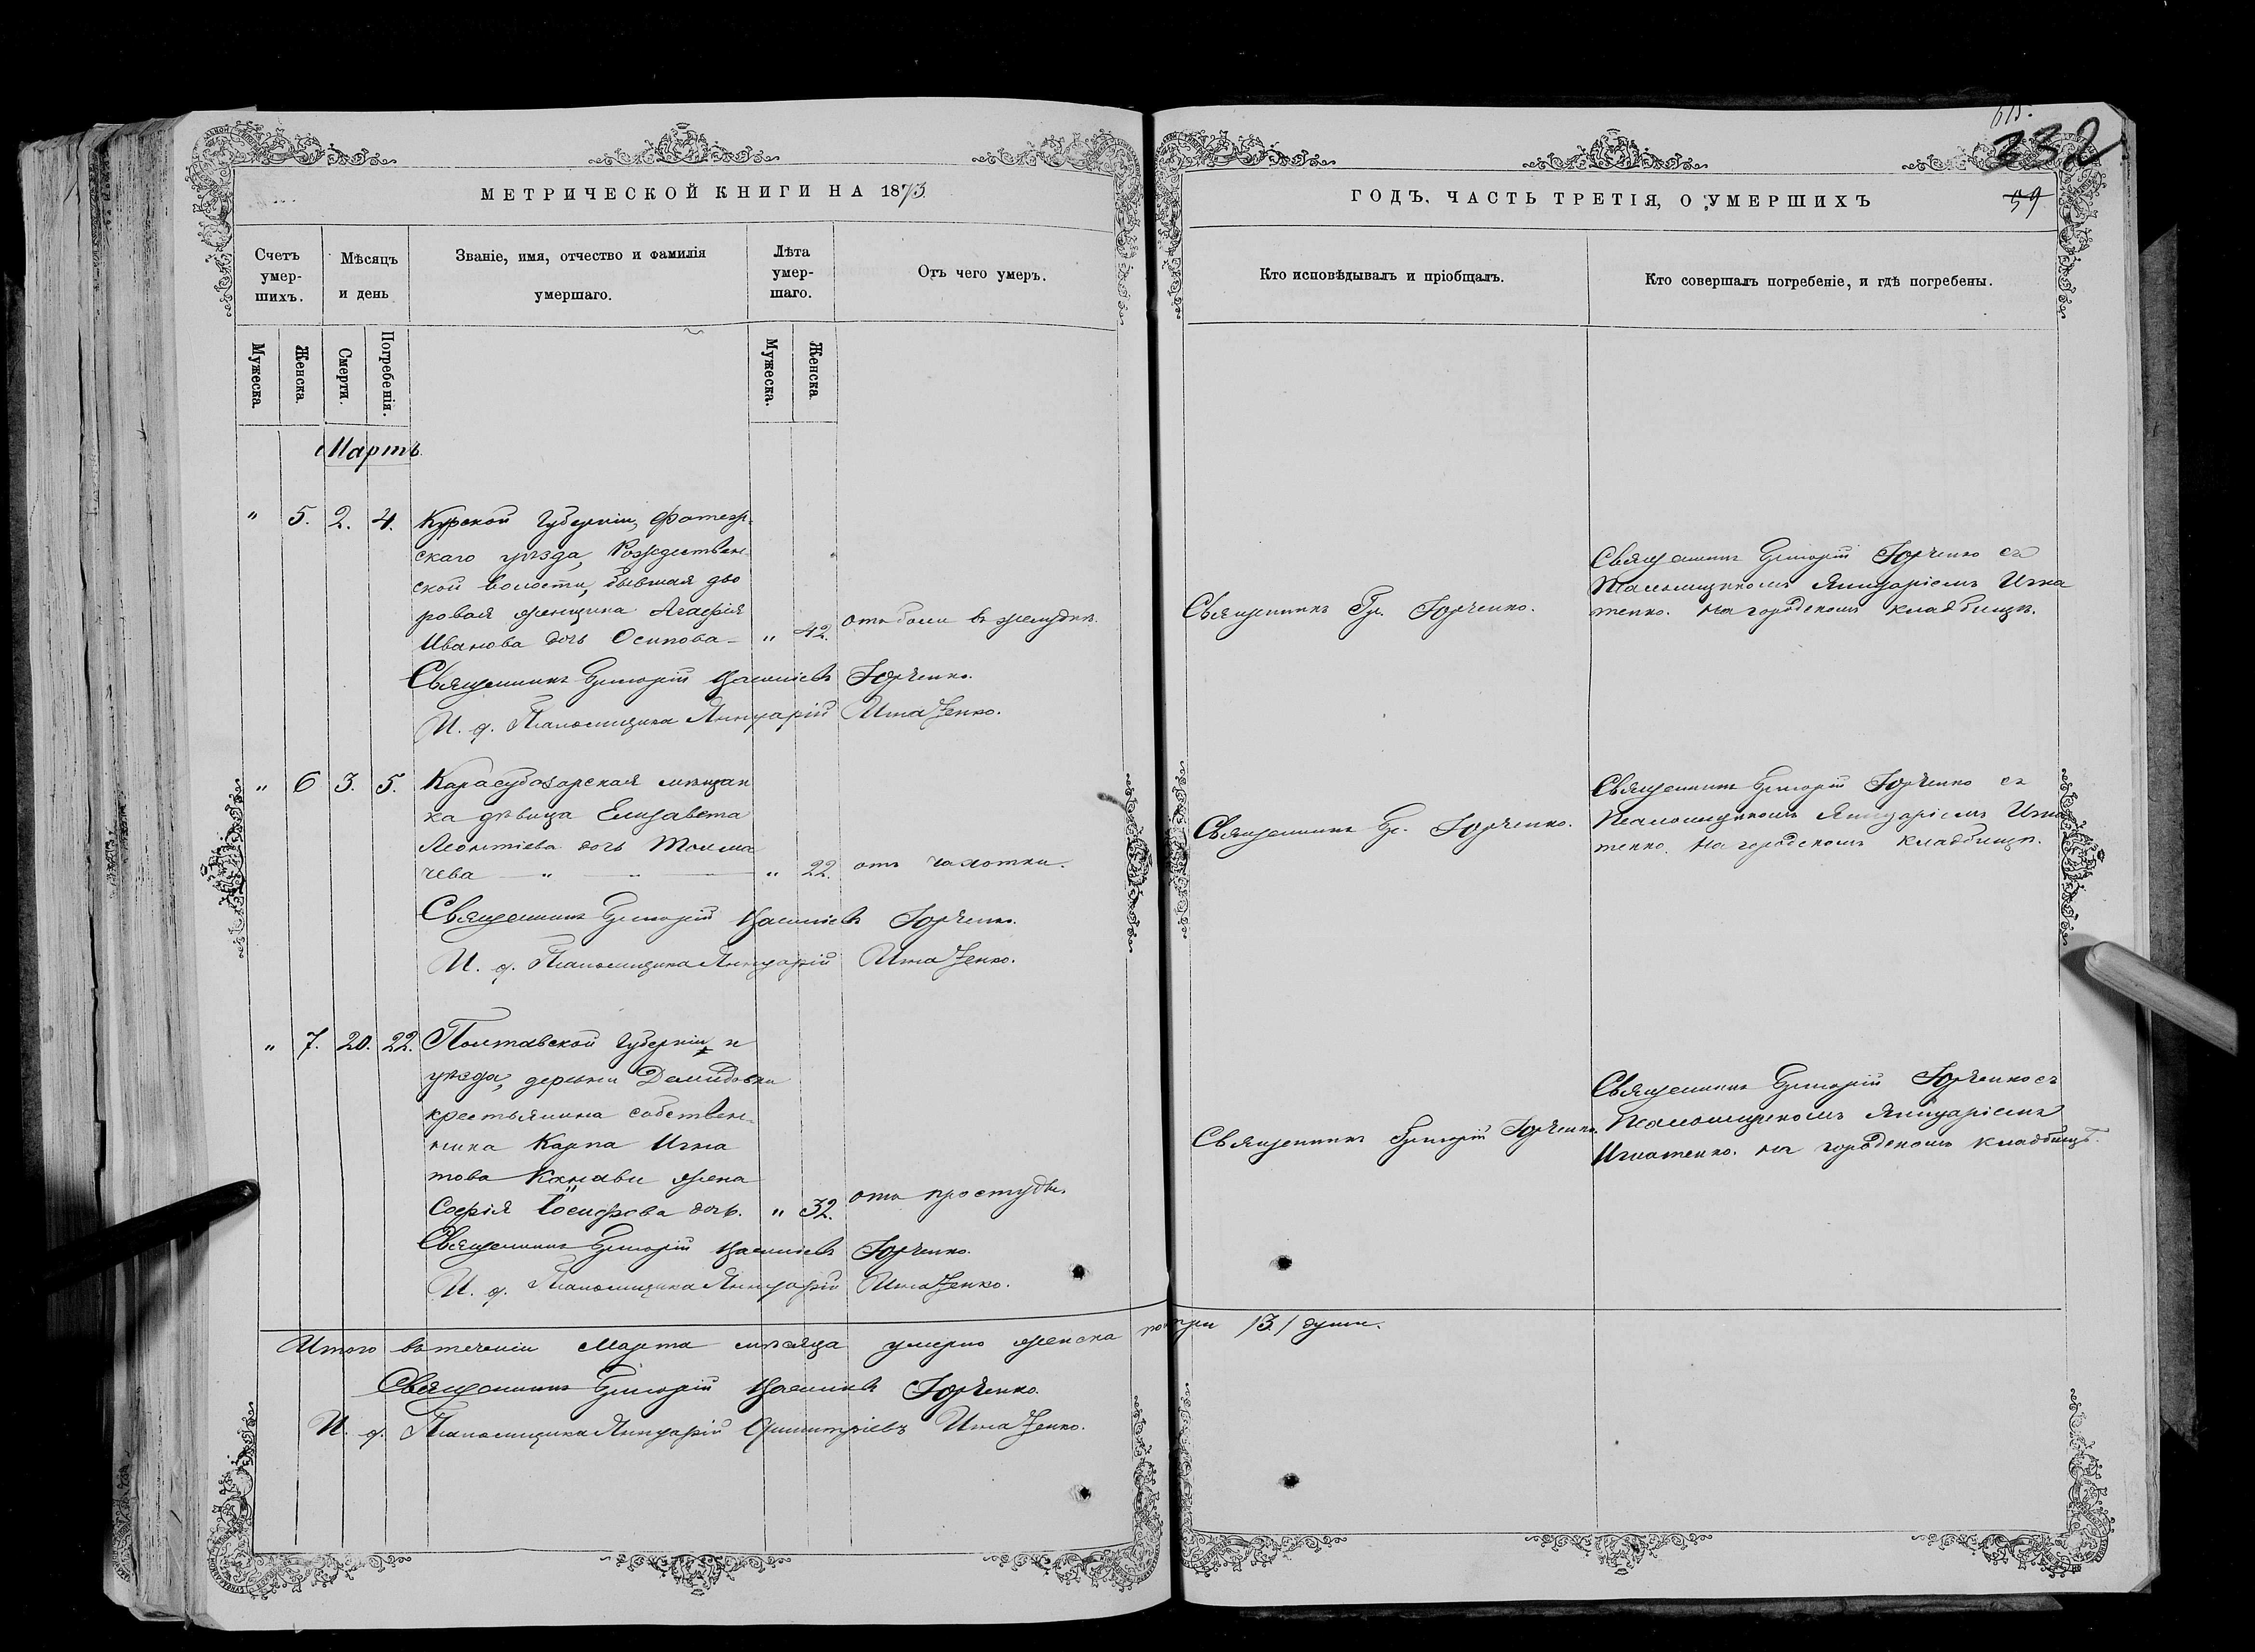 615.
332
МЕТРИЧЕСКОЙ КНИГИ НА 1873
ГОДЪ, ЧАСТЬ ТРЕТІЯ, О УМЕРШИХЪ
59
Счетъ умер-шихъ.
Мѣсяцъ и день
Званіе, имя, отчество и фамилія умершаго.
Лѣта умер-шаго.
Отъ чего умеръ.
Кто исповѣдывалъ и пріобщалъ.
Кто совершалъ погребеніе, и гдѣ погребены.
Мужеска.
Женска.
Смерти.
Погребенія.
Мужеска.
Женска.
Мартъ.
" 5. 2. 4. Курской Губерніи, Фатеж-
скаго уѣзда, Рождествен-
ской волости, бывшая дво
ровая женщина Агафія
Иванова дочь Осипова - " 42. отъ боли въ желудкѣ.
Священникъ Гр. Юрченко.
Священникъ Григорій Юрченко съ
Псаломщикомъ Яннуаріемъ Игна
тенко. на городскомъ кладбищѣ.
Священникъ Григорій Юрченко.
И. д. Псаломщика Яннуарій Игнатенко.
" 6 3. 5. Карасубазарская мѣщан
ка дѣвица Елизавета
Леонтіева дочь Толма
чева — " — " 22. отъ чахотки.
Священникъ Гр. Юрченко.
Священникъ Григорій Юрченко съ
Псаломщикомъ Яннуаріемъ Игна
тенко. на городскомъ кладбищѣ.
Священникъ Григорій Юрченко.
И. д. Псаломщика Яннуарій Игнатенко.
" 7. 20. 22. Полтавской Губерніи и
уѣзда, деревни Демидовки
крестьянина собствен-
ника Карпа Игна
това жена
Софія Іосифова дочь. " 32. отъ простуды.
Священникъ Григорій Юрченко.
Священникъ Григорій Юрченко съ
Псаломщикомъ Яннуаріемъ
Игнатенко. на городскомъ кладбищѣ.
Священникъ Григорій Юрченко.
И. д. Псаломщика Яннуарій Игнатенко.
Итого въ теченіи Марта мѣсяца умерло женска пола три /3/ души.
Священникъ Григорій Юрченко.
И. д. Псаломщика Яннуарій Димитріевъ Игнатенко.